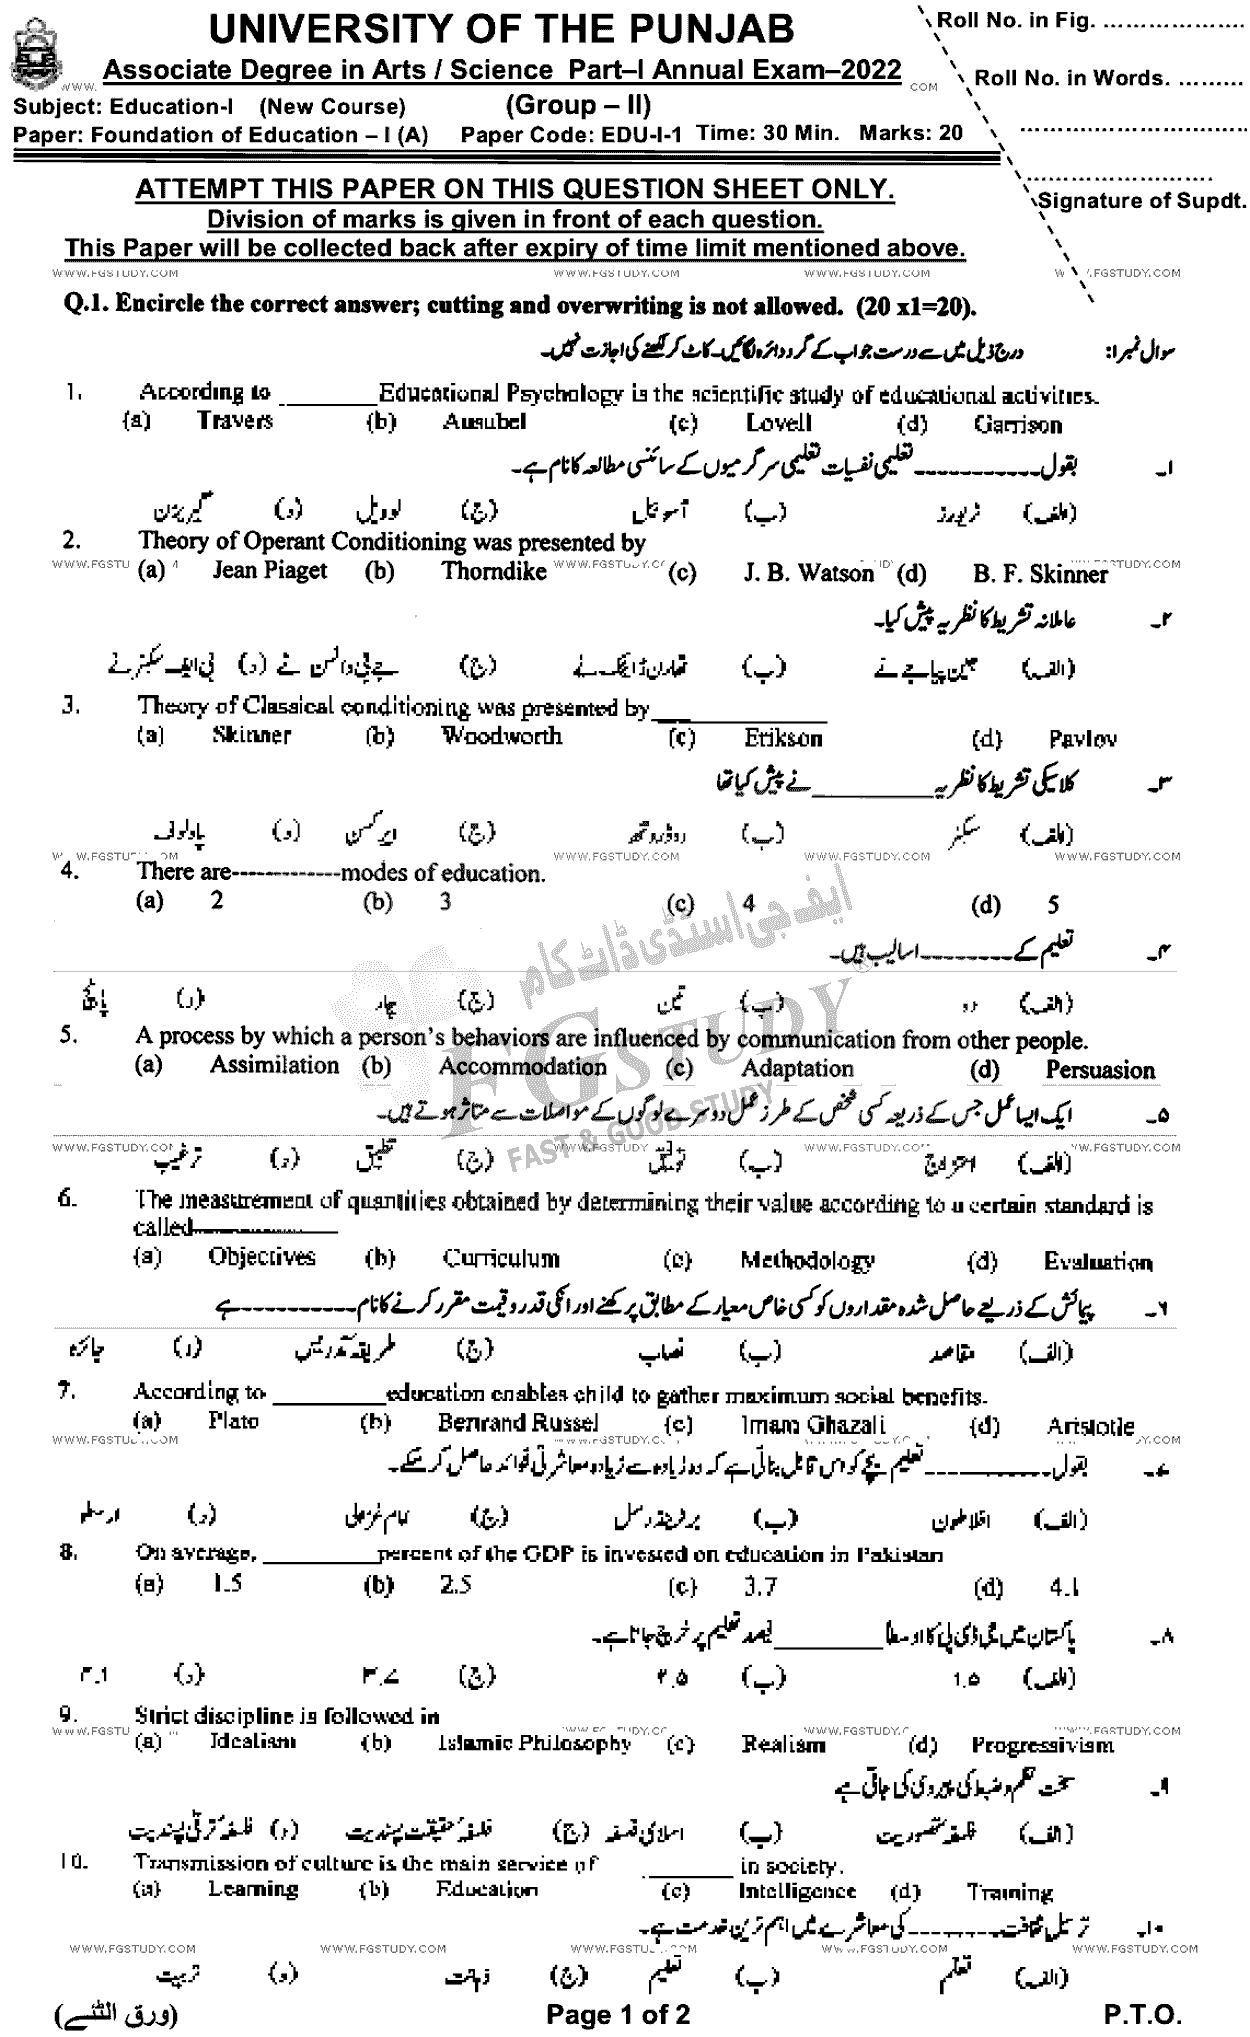 UNIVERSITY OF THE PUNJAB
Roll No. in Fig. ....................
Associate Degree in Arts / Science Part–I Annual Exam–2022
Roll No. in Words. .........
Subject: Education-I (New Course) (Group – II)
Paper: Foundation of Education – I (A) Paper Code: EDU-I-1 Time: 30 Min. Marks: 20
Signature of Supdt.
ATTEMPT THIS PAPER ON THIS QUESTION SHEET ONLY.
Division of marks is given in front of each question.
This Paper will be collected back after expiry of time limit mentioned above.
WWW.FGSTUDY.COM WWW.FGSTUDY.COM WWW.FGSTUDY.COM
Q.1. Encircle the correct answer; cutting and overwriting is not allowed. (20 x1=20).
سوال نمبر ۱: درج ذیل میں سے درست جواب کے گرد دائرہ لگائیں۔ کاٹ کر لکھنے کی اجازت نہیں۔
1. According to ________ Educational Psychology is the scientific study of educational activities.
(a) Travers (b) Ausubel (c) Lovell (d) Garrison
۱۔ بقول ----------- تعلیمی نفسیات تعلیمی سرگرمیوں کے سائنسی مطالعہ کا نام ہے۔
(الف) ٹریورز (ب) آسوبل (ج) لوویل (د) گیریزن
2. Theory of Operant Conditioning was presented by
(a) Jean Piaget (b) Thorndike (c) J. B. Watson (d) B. F. Skinner
۲۔ عاملانہ تشریط کا نظریہ پیش کیا۔
(الف) جین پیاجے نے (ب) تھارن ڈائیک نے (ج) جے بی واٹسن نے (د) بی ایف سکنر نے
3. Theory of Classical conditioning was presented by ________
(a) Skinner (b) Woodworth (c) Erikson (d) Pavlov
۳۔ کلاسیکی تشریط کا نظریہ ________ نے پیش کیا تھا
(الف) سکنر (ب) ووڈورتھ (ج) ایرکسن (د) پاولوف
WWW.FGSTUDY.COM WWW.FGSTUDY.COM WWW.FGSTUDY.COM
4. There are-------------modes of education.
(a) 2 (b) 3 (c) 4 (d) 5
۴۔ تعلیم کے --------- اسالیب ہیں۔
(الف) دو (ب) تین (ج) چار (د) پانچ
ایف جی اسٹڈی ڈاٹ کام
FGSTUDY
FAST & GOOD STUDY
5. A process by which a person's behaviors are influenced by communication from other people.
(a) Assimilation (b) Accommodation (c) Adaptation (d) Persuasion
۵۔ ایک ایسا عمل جس کے ذریعہ کسی شخص کے طرز عمل دوسرے لوگوں کے مواصلات سے متاثر ہوتے ہیں۔
(الف) (ب) (ج) تطبیق (د) ترغیب
6. The measurement of quantities obtained by determining their value according to a certain standard is
called
(a) Objectives (b) Curriculum (c) Methodology (d) Evaluation
۶۔ پیمائش کے ذریعے حاصل شدہ مقداروں کو کسی خاص معیار کے مطابق پرکھنے اور انکی قدر و قیمت مقرر کرنے کا نام ----------- ہے
(الف) مقاصد (ب) نصاب (ج) طریقہ تدریس (د) جائزہ
7. According to ________ education enables child to gather maximum social benefits.
(a) Plato (b) Bertrand Russel (c) Imam Ghazali (d) Aristotle
۷۔ بقول ----------- تعلیم بچے کو اس قابل بناتی ہے کہ وہ زیادہ سے زیادہ معاشرتی فوائد حاصل کر سکے۔
(الف) افلاطون (ب) برٹرینڈ رسل (ج) امام غزالی (د) ارسطو
8. On average, ________ percent of the GDP is invested on education in Pakistan
(a) 1.5 (b) 2.5 (c) 3.7 (d) 4.1
۸۔ پاکستان میں جی ڈی پی کا اوسطاً ________ فیصد تعلیم پر خرچ کیا جاتا ہے۔
(الف) ۱.۵ (ب) ۲.۵ (ج) ۳.۷ (د) ۴.۱
9. Strict discipline is followed in
(a) Idealism (b) Islamic Philosophy (c) Realism (d) Progressivism
۹۔ سخت نظم و ضبط کی پیروی کی جاتی ہے
(الف) فلسفہ تصوریت (ب) اسلامی فلسفہ (ج) فلسفہ حقیقت پسندیت (د) فلسفہ ترقی پسندیت
10. Transmission of culture is the main service of ________ in society.
(a) Learning (b) Education (c) Intelligence (d) Training
۱۰۔ ترسیل ثقافت --------- کی معاشرے میں اہم ترین خدمت ہے۔
WWW.FGSTUDY.COM WWW.FGSTUDY.COM WWW.FGSTUDY.COM
(الف) تعلم (ب) تعلیم (ج) ذہانت (د) تربیت
(ورق الٹئے) Page 1 of 2 P.T.O.